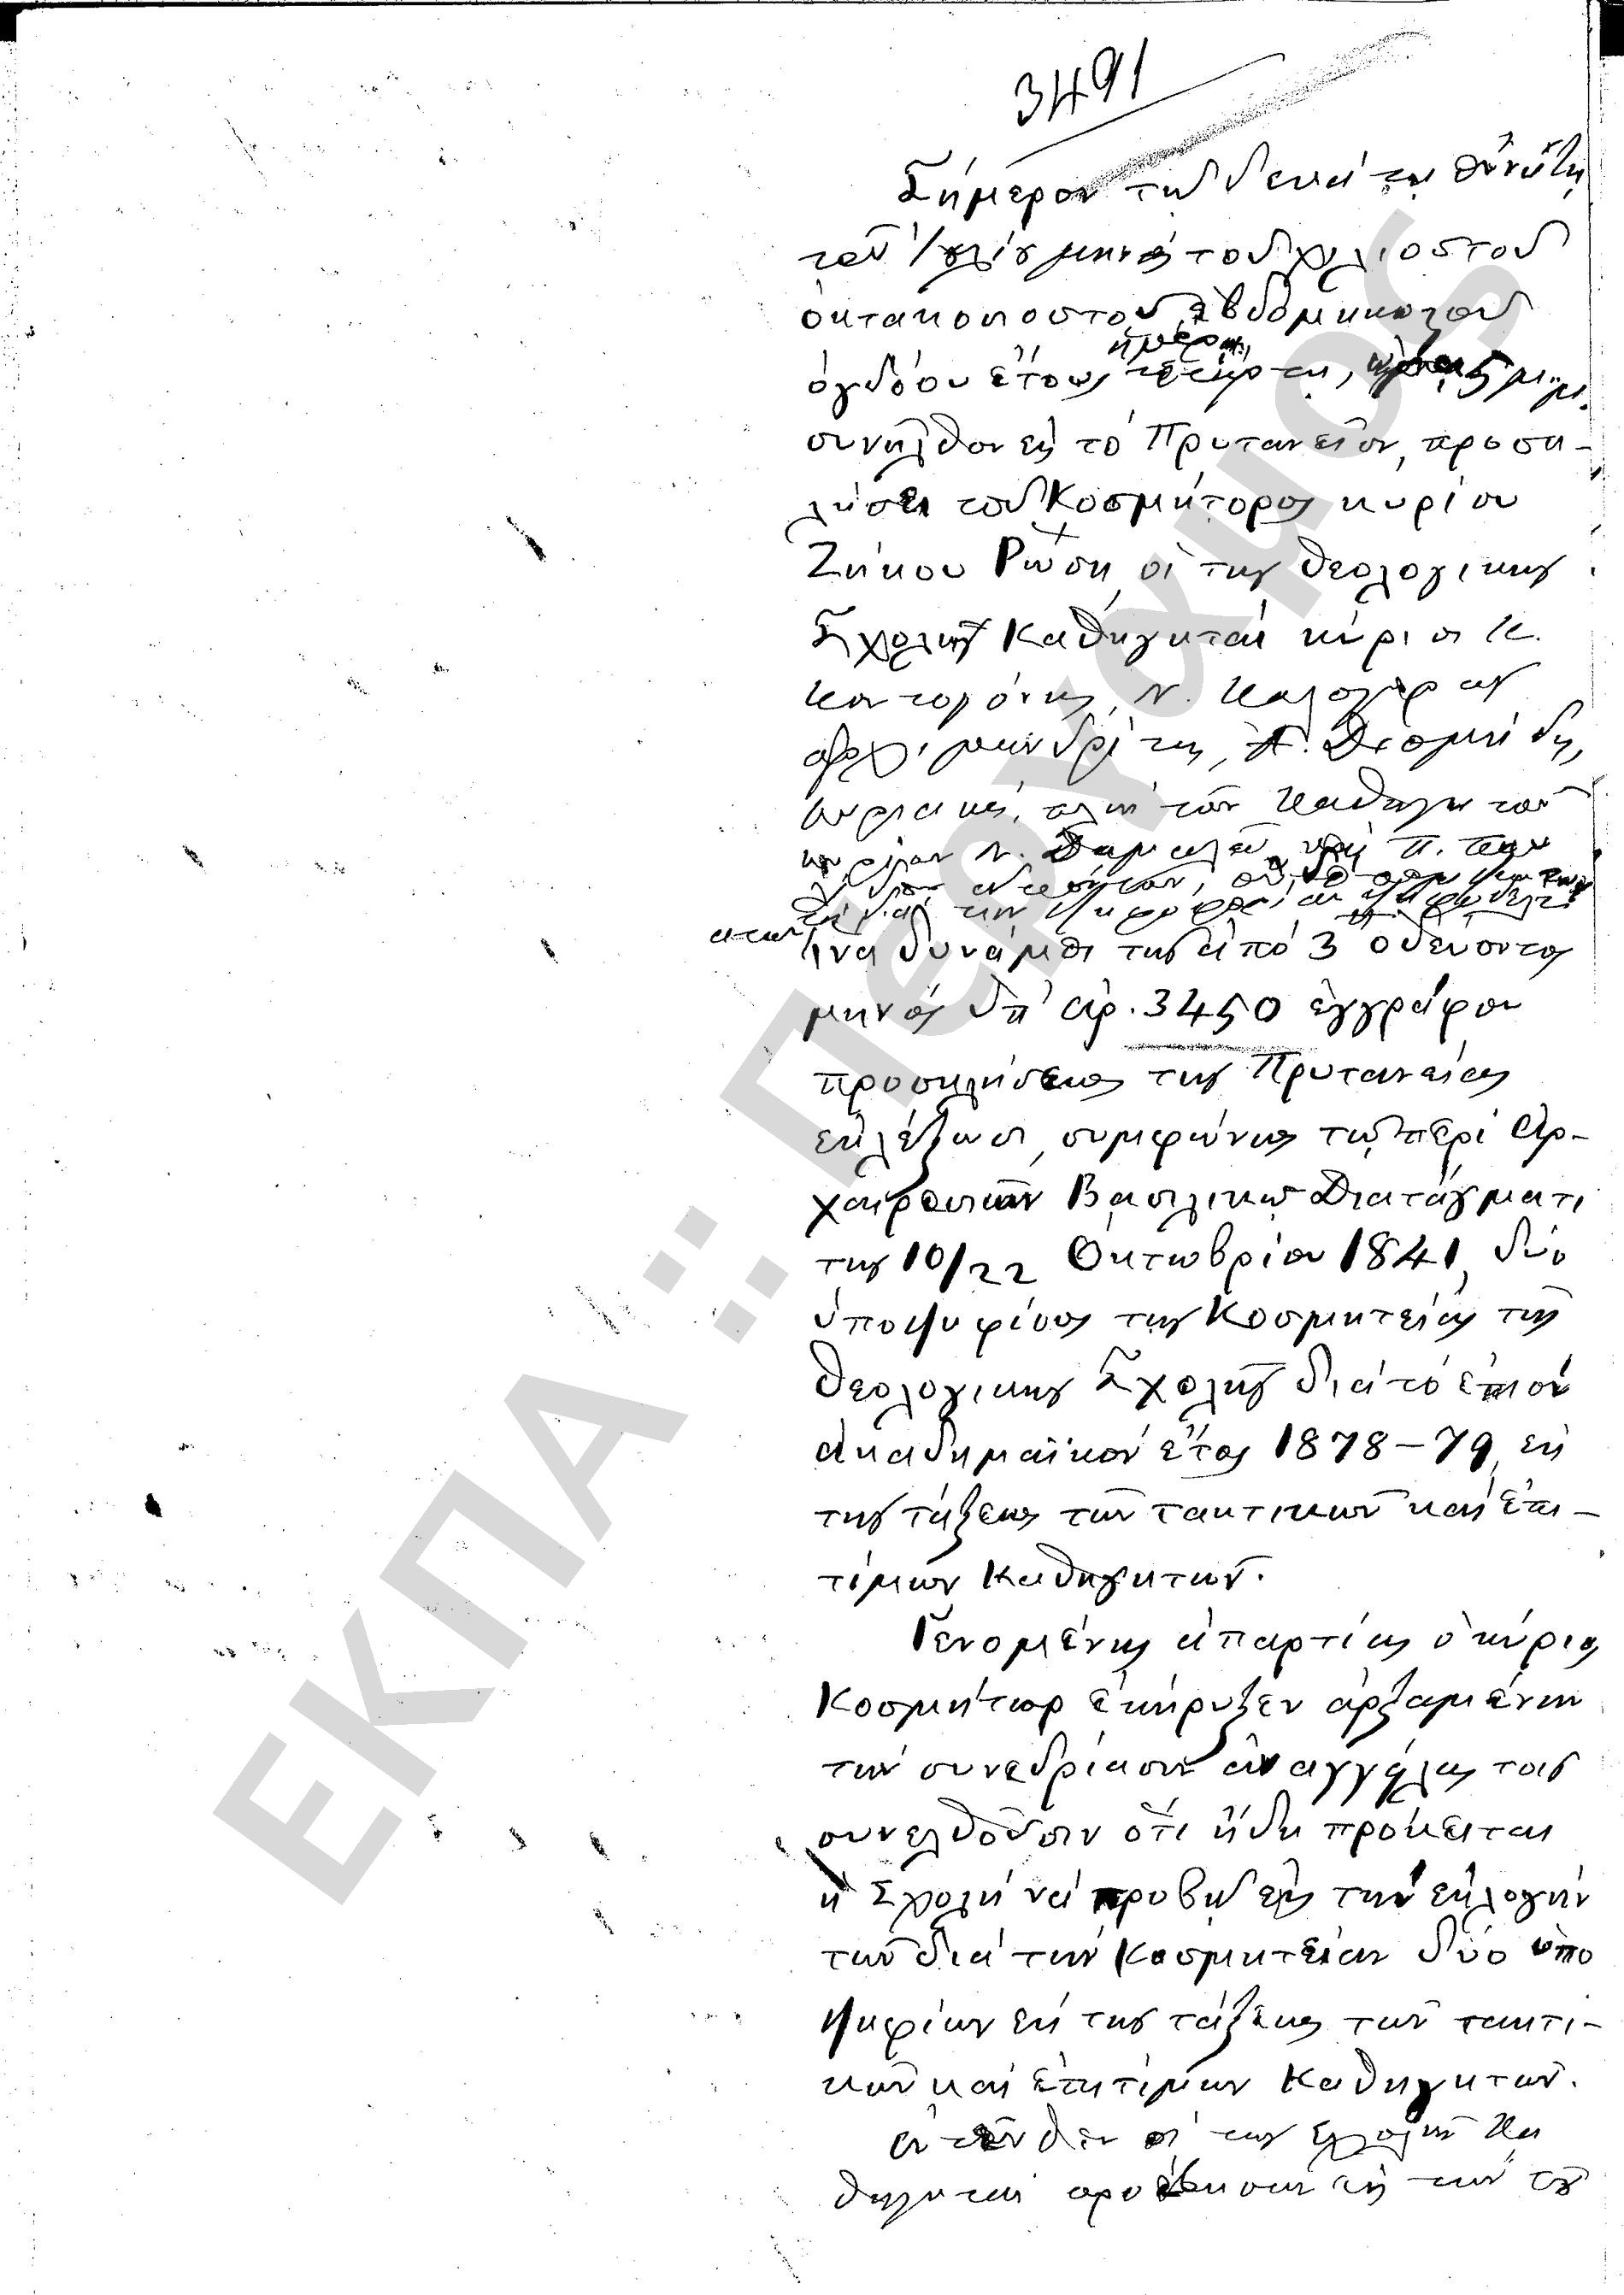 3491
Σήμερον τῇ δεκάτῃ ἐννάτῃ
τοῦ Ἰουλίου μηνὸς τοῦ χιλιοστοῦ
ὀκτακοσιοστοῦ ἑβδομηκοστοῦ
ἡμέρᾳ
ὀγδόου ἔτους τετάρτῃ, ὥρᾳ 5 μ.μ.
συνῆλθον εἰς τὸ Πρυτανεῖον, προσκ-
λήσει τοῦ Κοσμήτορος κυρίου
Ζήκου Ρώση οἱ τῆς Θεολογικῆς
Σχολῆς Καθηγηταὶ κύριοι Κ.
Κοντογόνης, Ν. Καλογερᾶς
ἀρχιμανδρίτης, Α. Διομήδης
Κυριακός, πλὴν τῶν Καθηγητῶν
κυρίων Ν. Δαμαλᾶ καὶ Π. Παυ
λίδου
ἵνα δυνάμει τῆς ἀπὸ 3 ὁδεύοντος
μηνὸς ὑπ' ἀρ. 3450 ἐγγράφου
προσκλήσεως τῆς Πρυτανείας
ἐκλέξωσι, συμφώνως τῷ περὶ Ἀρ-
χαιρεσιῶν Βασιλικῷ Διατάγματι
τῆς 10/22 Ὀκτωβρίου 1841, δύο
ὑποψηφίους τῆς Κοσμητείας τῆς
Θεολογικῆς Σχολῆς διὰ τὸ ἐπιὸν
ἀκαδημαϊκὸν ἔτος 1878–79, ἐκ
τῆς τάξεως τῶν τακτικῶν καὶ ἐπι-
τίμων Καθηγητῶν.
Γενομένης ἀπαρτίας ὁ κύριος
Κοσμήτωρ ἐκήρυξεν ἀρξαμένην
τὴν συνεδρίασιν ἀναγγείλας τοῖς
συνελθοῦσιν ὅτι ἤδη πρόκειται
ἡ Σχολὴ νὰ προβῇ εἰς τὴν ἐκλογὴν
τῶν διὰ τὴν Κοσμητείαν δύο ὑπο
ψηφίων ἐκ τῆς τάξεως τῶν τακτι-
κῶν καὶ ἐπιτίμων Καθηγητῶν.
Ἐντεῦθεν οἱ τῆς Σχολῆς Κα
θηγηταὶ προέβησαν εἰς τὴν τοῦ
ΕΚΠΑ :: Πέργαμος